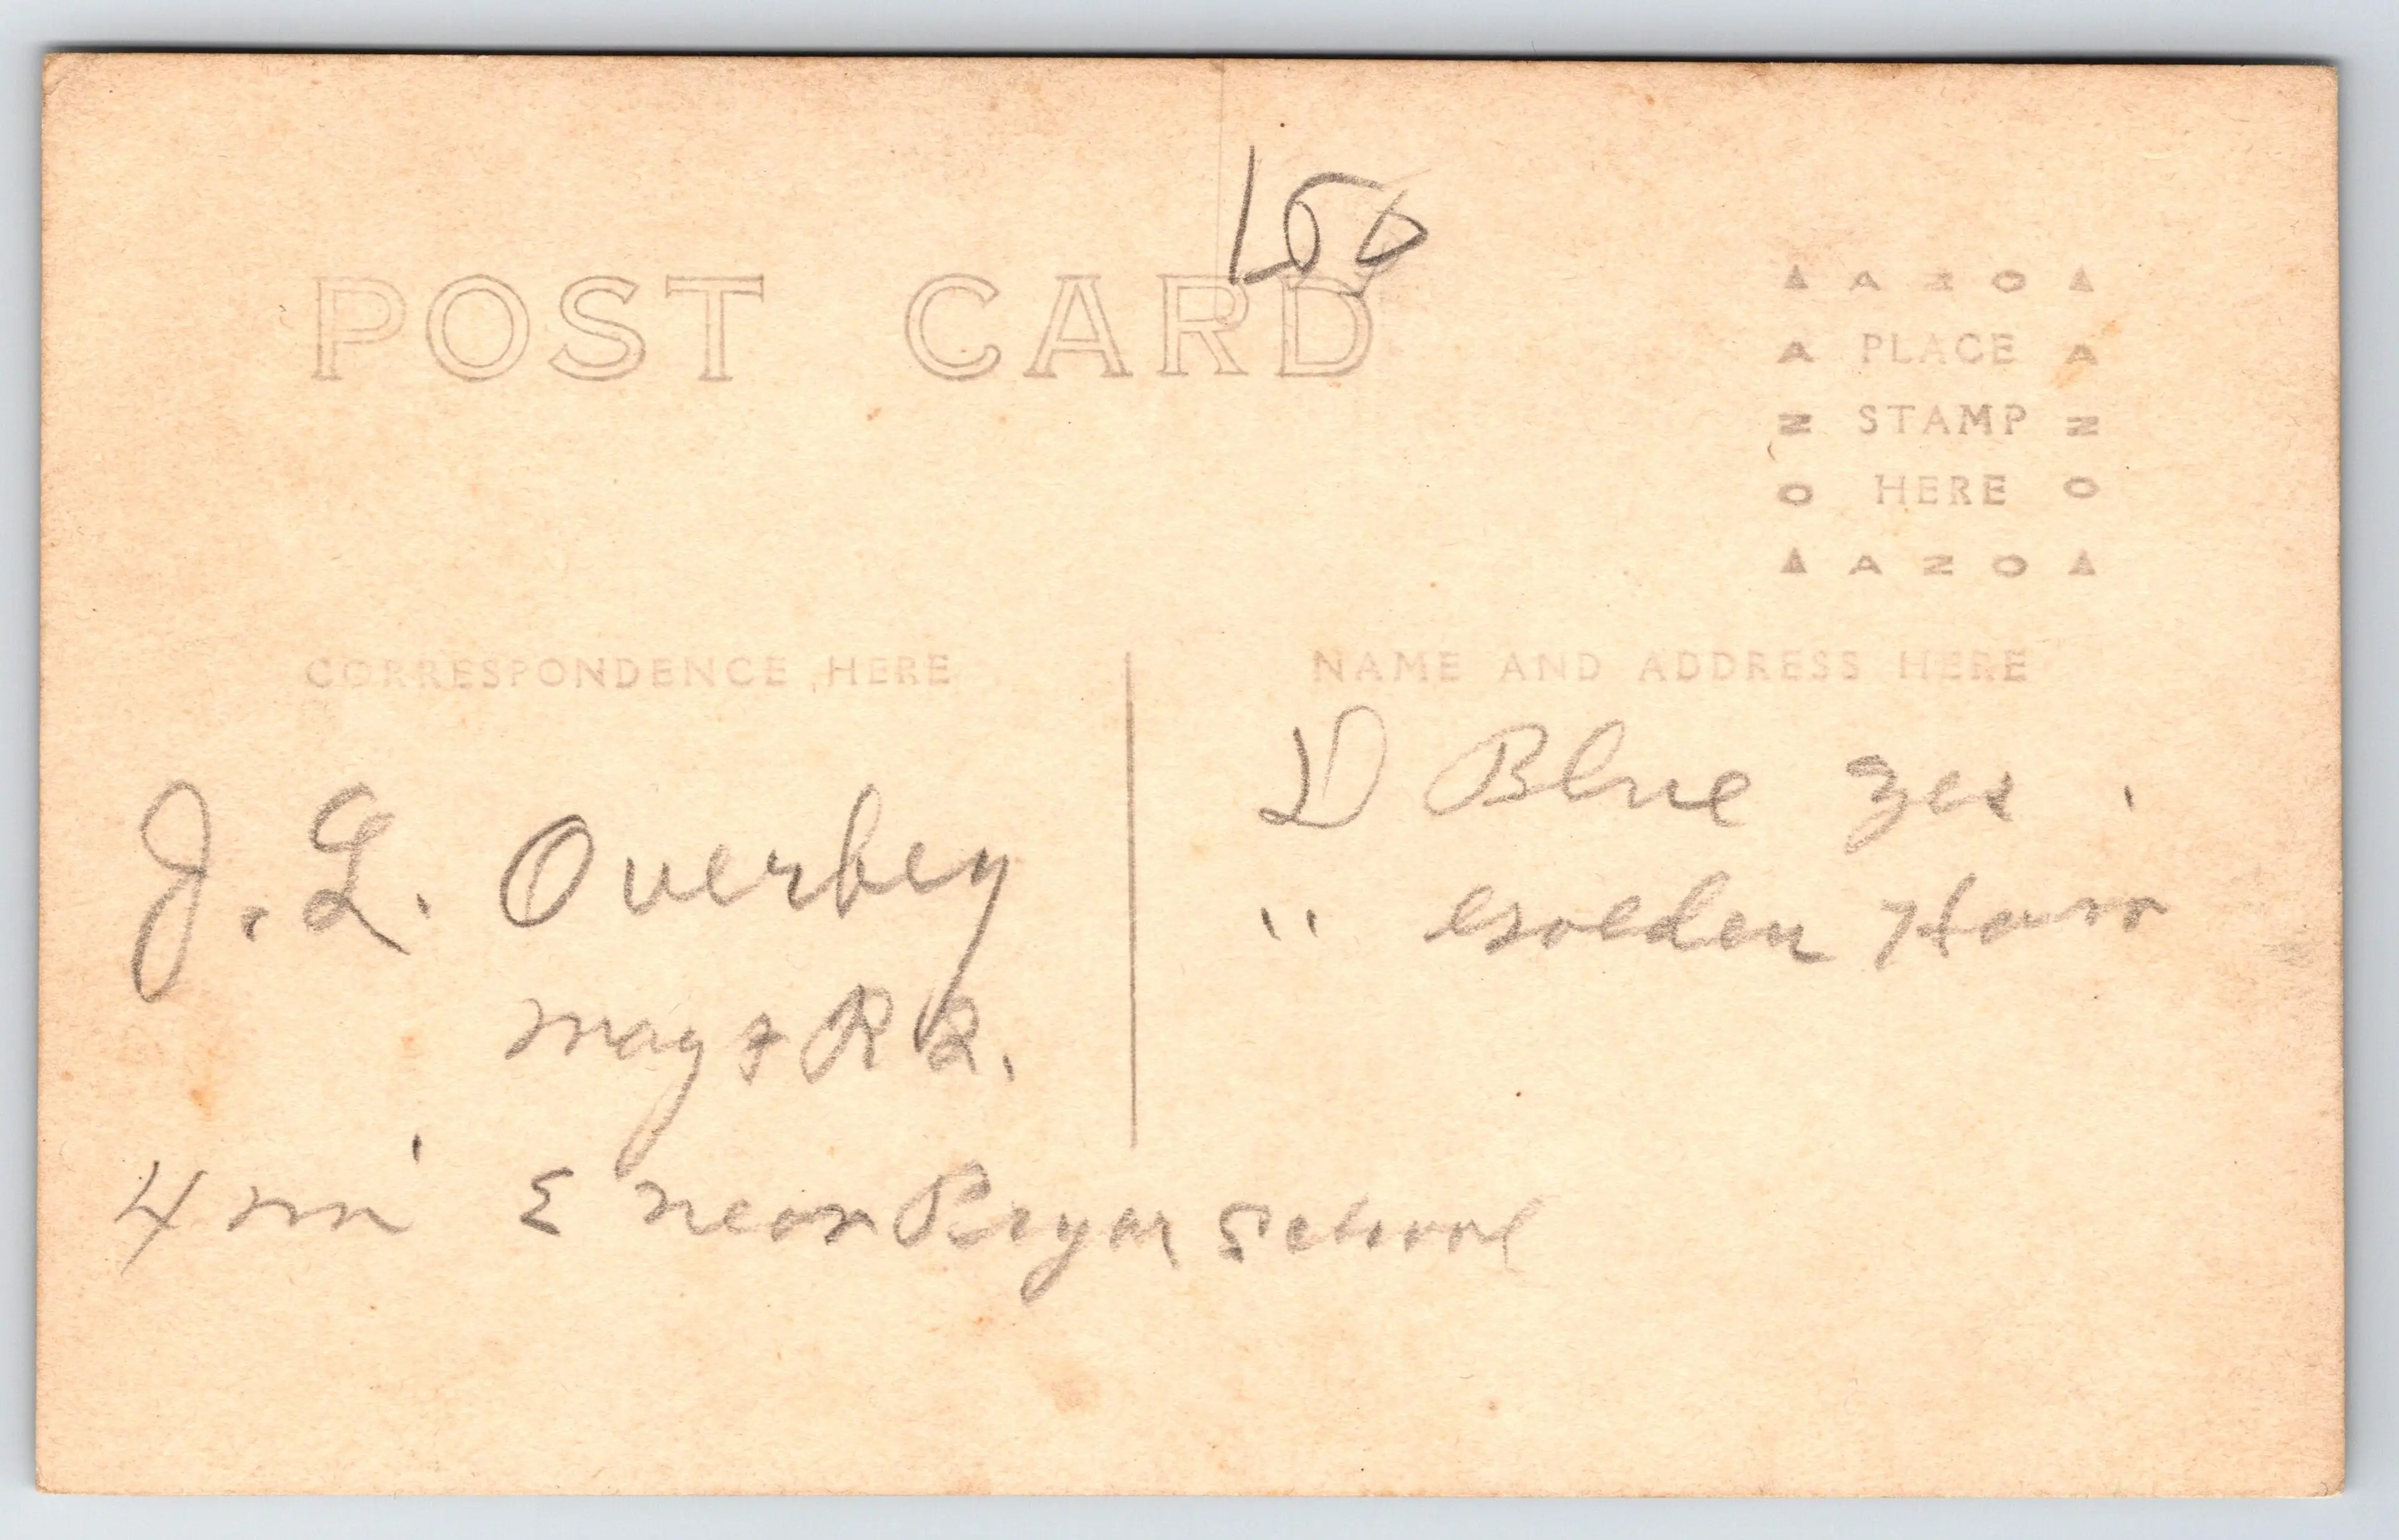 150
POST CARD
▲ A Z O ▲
A PLACE A
Z STAMP Z
O HERE O
▲ A Z O ▲
CORRESPONDENCE HERE
NAME AND ADDRESS HERE
J. L. Overbey
R 2.
4 mi E near Pryor School
D Blue
" Golden